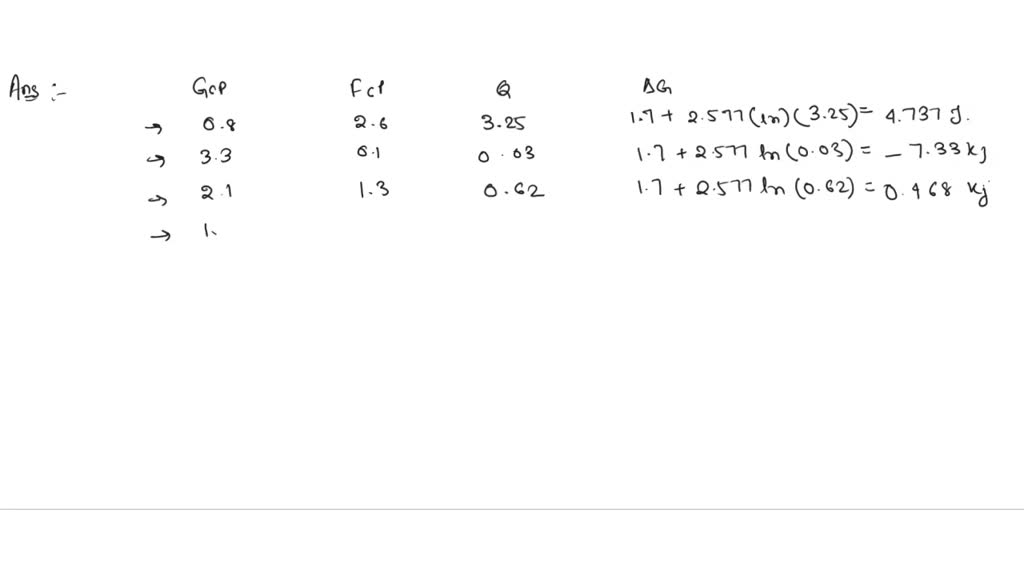 Ans :- GCP FCP Q ΔG
→ 0.8 2.6 3.25 1.7 + 2.577 (ln) (3.25) = 4.737 J.
→ 3.3 0.1 0.03 1.7 + 2.577 ln (0.03) = - 7.33 kj
→ 2.1 1.3 0.62 1.7 + 2.577 ln (0.62) = 0.468 kj
→ 1.